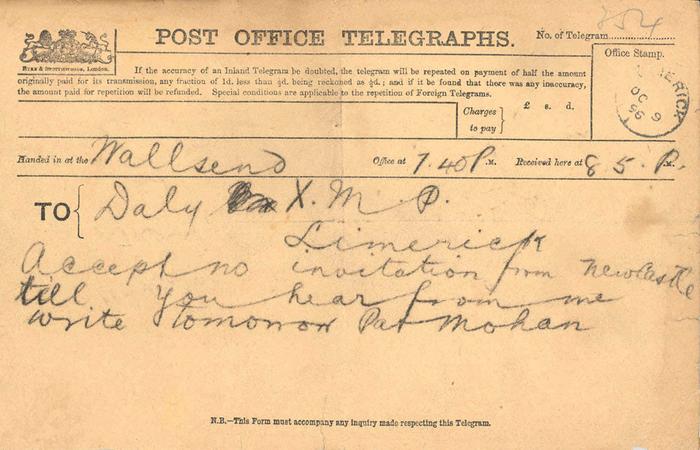 754
POST OFFICE TELEGRAPHS.
No. of Telegram
Office Stamp.
EYRE & SPOTTISWOODE, London.
If the accuracy of an Inland Telegram be doubted, the telegram will be repeated on payment of half the amount
originally paid for its transmission, any fraction of 1d. less than ½d. being reckoned as ½d.; and if it be found that there was any inaccuracy,
the amount paid for repetition will be refunded. Special conditions are applicable to the repetition of Foreign Telegrams.
Charges to pay } £ s. d.
MERICK
OC 6
95
Handed in at the Wallsend Office at 7.40 P.M. Received here at 8 5. P.M.
TO { Daly X. M. P.
Limerick
Accept no invitation from Newcastle
till you hear from me
write tomorrow Pat Mohan
N.B.—This Form must accompany any inquiry made respecting this Telegram.